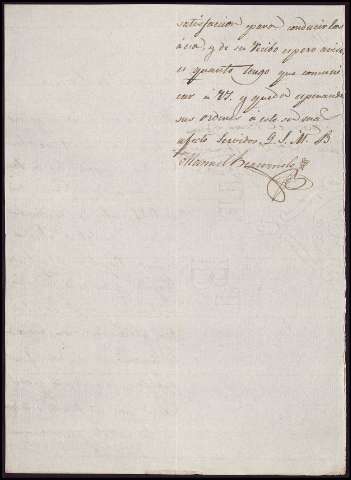 satisfaccion para conducirlos
a esa, y de su recibo espero aviso
es quanto tengo que comuni
car a VS. y queda esperando
sus ordenes a este su mas
afecto Servidor Q. S. M. B
Manuel